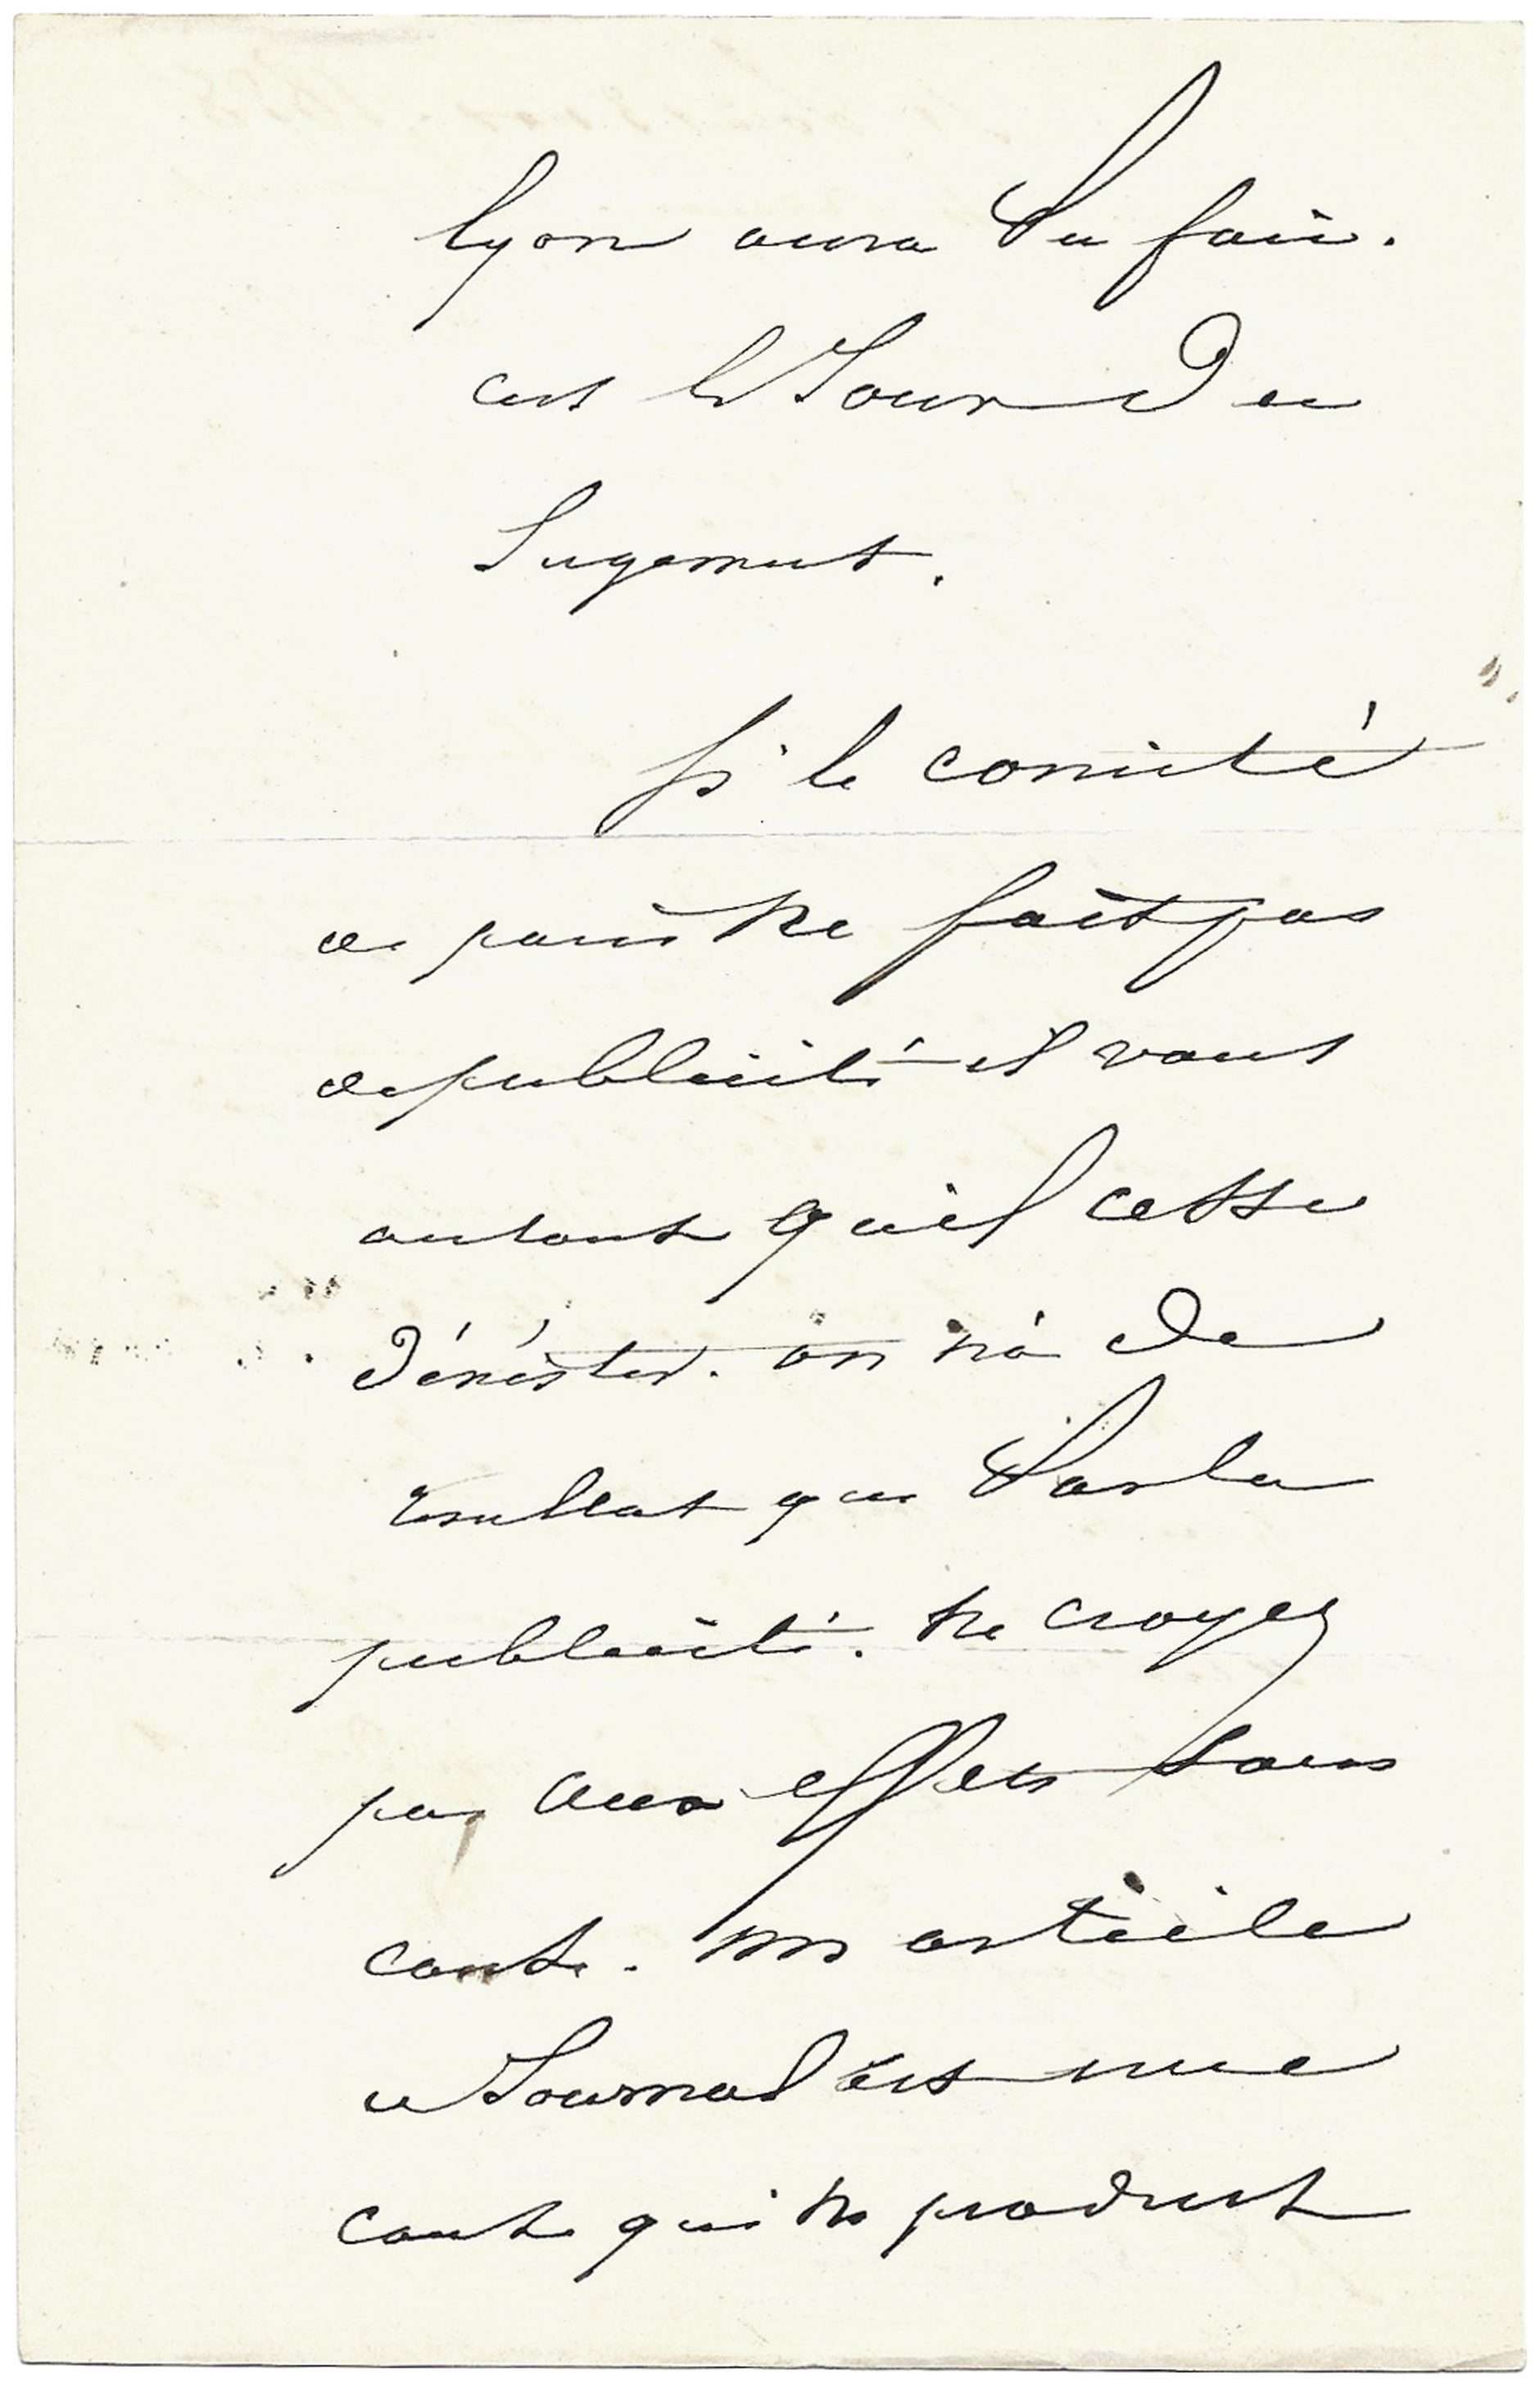 Lyon aura Su faire.
cest le Jour du
Jugement.
Si le comité
de paris Ne fait pas
de publicité il vaut
autant qu'il cesse
d'éxister. on n'a de
resultat que Par la
publicité. Ne croyez
pas aux effets sans
cause. un article
de Journal est une
cause qui Ne produit